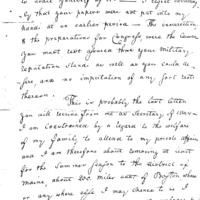 by that your papers were not put into my
hands at an earlier period — The
& the preparations for Congress were the cause,
You must rest assured that your military
reputation stands as well as you could de-
sire and no imputation of any sort rests
thereon.
This is probably the last letter
you will receive from me as Secretary of War —
I am constrained by a regard to the welfare of
my family to attend to my private affairs
and I am therefore about removing at least
for the summer season to the district of
Maine, about 200 miles east of Boston where
or any where else I may chance to be I